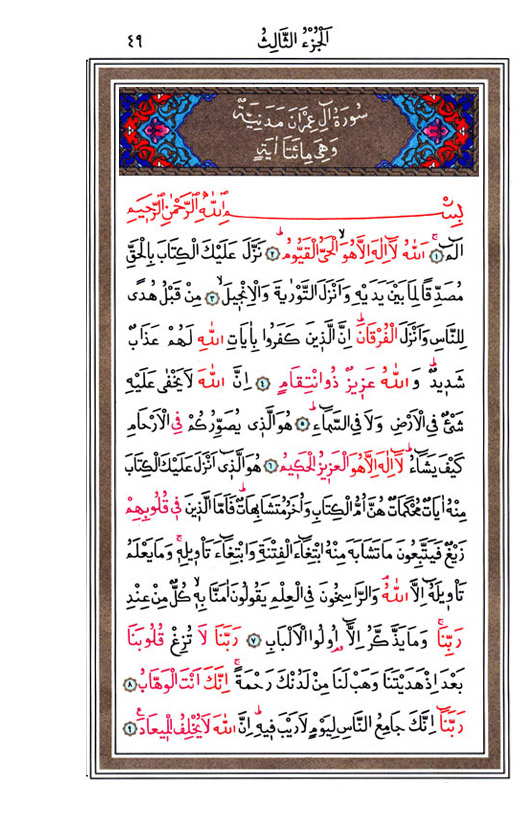 اَلْجُزْءُ الثَّالِثُ ٤٩
سُورَةُ اٰلِ عِمْرٰنَ مَدَنِيَّةٌ
وَهِيَ مِائَتَا اٰيَةٍ
بِسْمِ اللّٰهِ الرَّحْمٰنِ الرَّحِيمِ
الٓمٓ ١ اَللّٰهُ لَٓا اِلٰهَ اِلَّا هُوَۙ الْحَيُّ الْقَيُّومُۜ ٢ نَزَّلَ عَلَيْكَ الْكِتَابَ بِالْحَقِّ
مُصَدِّقًا لِمَا بَيْنَ يَدَيْهِ وَاَنْزَلَ التَّوْرٰيةَ وَالْاِنْجٖيلَ ٣ مِنْ قَبْلُ هُدًى
لِلنَّاسِ وَاَنْزَلَ الْفُرْقَانَۜ اِنَّ الَّذٖينَ كَفَرُوا بِاٰيَاتِ اللّٰهِ لَهُمْ عَذَابٌ
شَدٖيدٌۜ وَاللّٰهُ عَزٖيزٌ ذُو انْتِقَامٍ ٤ اِنَّ اللّٰهَ لَا يَخْفٰى عَلَيْهِ
شَيْءٌ فِي الْاَرْضِ وَلَا فِي السَّمَٓاءِۜ ٥ هُوَ الَّذٖي يُصَوِّرُكُمْ فِي الْاَرْحَامِ
كَيْفَ يَشَٓاءُۜ لَٓا اِلٰهَ اِلَّا هُوَ الْعَزٖيزُ الْحَكٖيمُ ٦ هُوَ الَّذٖٓي اَنْزَلَ عَلَيْكَ الْكِتَابَ
مِنْهُ اٰيَاتٌ مُحْكَمَاتٌ هُنَّ اُمُّ الْكِتَابِ وَاُخَرُ مُتَشَابِهَاتٌۜ فَاَمَّا الَّذٖينَ فٖي قُلُوبِهِمْ
زَيْغٌ فَيَتَّبِعُونَ مَا تَشَابَهَ مِنْهُ ابْتِغَٓاءَ الْفِتْنَةِ وَابْتِغَٓاءَ تَأْوٖيلِهٖۚ وَمَا يَعْلَمُ
تَأْوٖيلَهُٓ اِلَّا اللّٰهُۢ وَالرَّاسِخُونَ فِي الْعِلْمِ يَقُولُونَ اٰمَنَّا بِهٖۙ كُلٌّ مِنْ عِنْدِ
رَبِّنَاۚ وَمَا يَذَّكَّرُ اِلَّٓا اُو۬لُوا الْاَلْبَابِ ٧ رَبَّنَا لَا تُزِغْ قُلُوبَنَا
بَعْدَ اِذْ هَدَيْتَنَا وَهَبْ لَنَا مِنْ لَدُنْكَ رَحْمَةًۚ اِنَّكَ اَنْتَ الْوَهَّابُ ٨
رَبَّنَٓا اِنَّكَ جَامِعُ النَّاسِ لِيَوْمٍ لَا رَيْبَ فٖيهِۜ اِنَّ اللّٰهَ لَا يُخْلِفُ الْمٖيعَادَۚ ٩